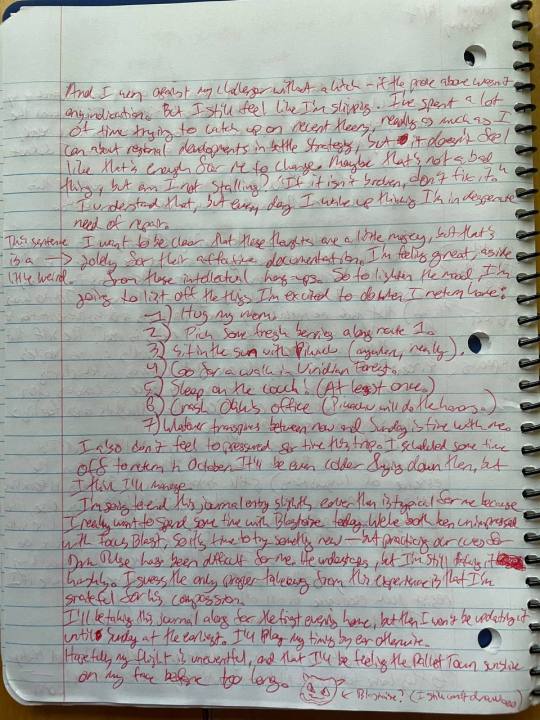 And I won against my challenger without a hitch – if the prose above wasn't
any indication. But I still feel like I'm slipping. I've spent a lot
of time trying to catch up on recent theory, reading as much as I
can about regional developments in battle strategy, but it doesn't feel
like that's enough for me to change. Maybe that's not a bad
thing, but am I not stalling? "If it isn't broken, don't fix it."
I understand that, but every day I wake up thinking I'm in desperate
need of repair.
This sentence is a little weird. → I want to be clear that these thoughts are a little mopey, but that's
solely for their affective documentation. I'm feeling great, aside
from these intellectual hang-ups. So to lighten the mood, I'm
going to list off the things I'm excited to do when I return home:
1) Hug my mom.
2) Pick some fresh berries along route 1.
3) Sit in the sun with Pikachu (anywhere, really).
4) Go for a walk in Viridian Forest.
5) Sleep on the couch! (At least once.)
6) Crash Oak's office (Pikachu will do the honors.)
7) Whatever transpires between now and Sunday is fine with me.
I also don't feel too pressured for time this trip. I scheduled some time
off to return in October. It'll be even colder flying down then, but
I think I'll manage.
I'm going to end this journal entry slightly earlier than is typical for me because
I really want to spend some time with Blastoise today. We've both been unimpressed
with Focus Blast, so it's time to try something new — but practicing our cues for
Dark Pulse has been difficult for me. He understands, but I'm still taking it
harshly. I guess the only proper takeaway from this experience is that I'm
grateful for his compassion.
I'll be taking this journal along for the first evening home, but then I won't be updating it
until Sunday at the earliest. I'll play my timing by ear otherwise.
Hopefully my flight is uneventful, and that I'll be feeling the Pallet Town sunshine
on my face before too long.
← Blastoise? (I still can't draw)